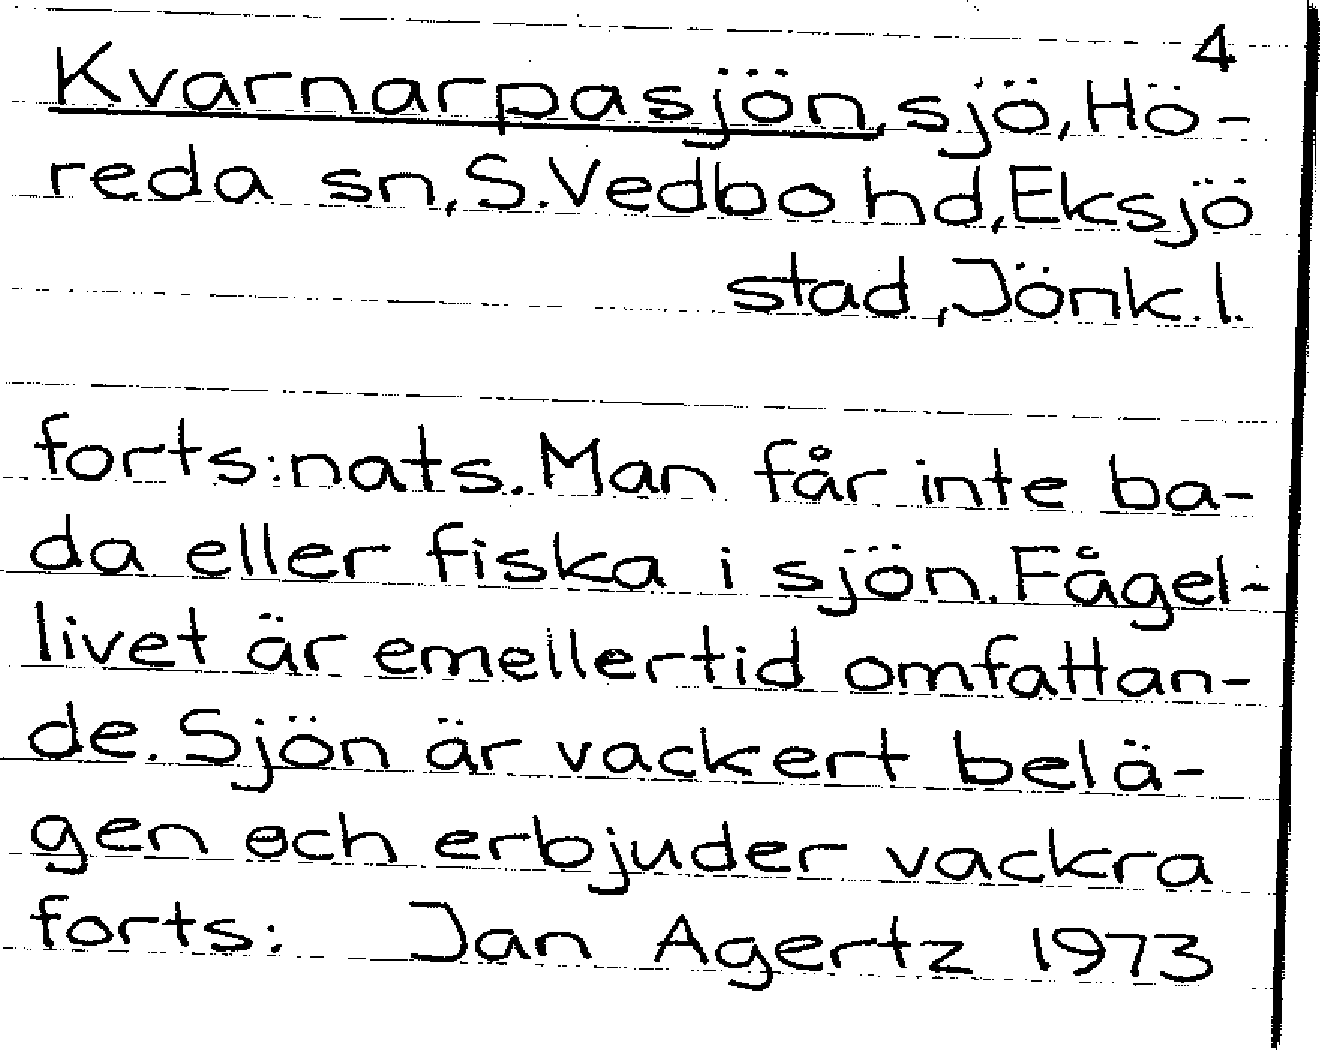 4
Kvarnarpasjön, sjö, Hö-
reda sn, S. Vedbo hd, Eksjö
stad, Jönk. l.
forts: nats. Man får inte ba-
da eller fiska i sjön. Fågel-
livet är emellertid omfattan-
de. Sjön är vackert belä-
gen och erbjuder vackra
forts: Jan Agertz 1973